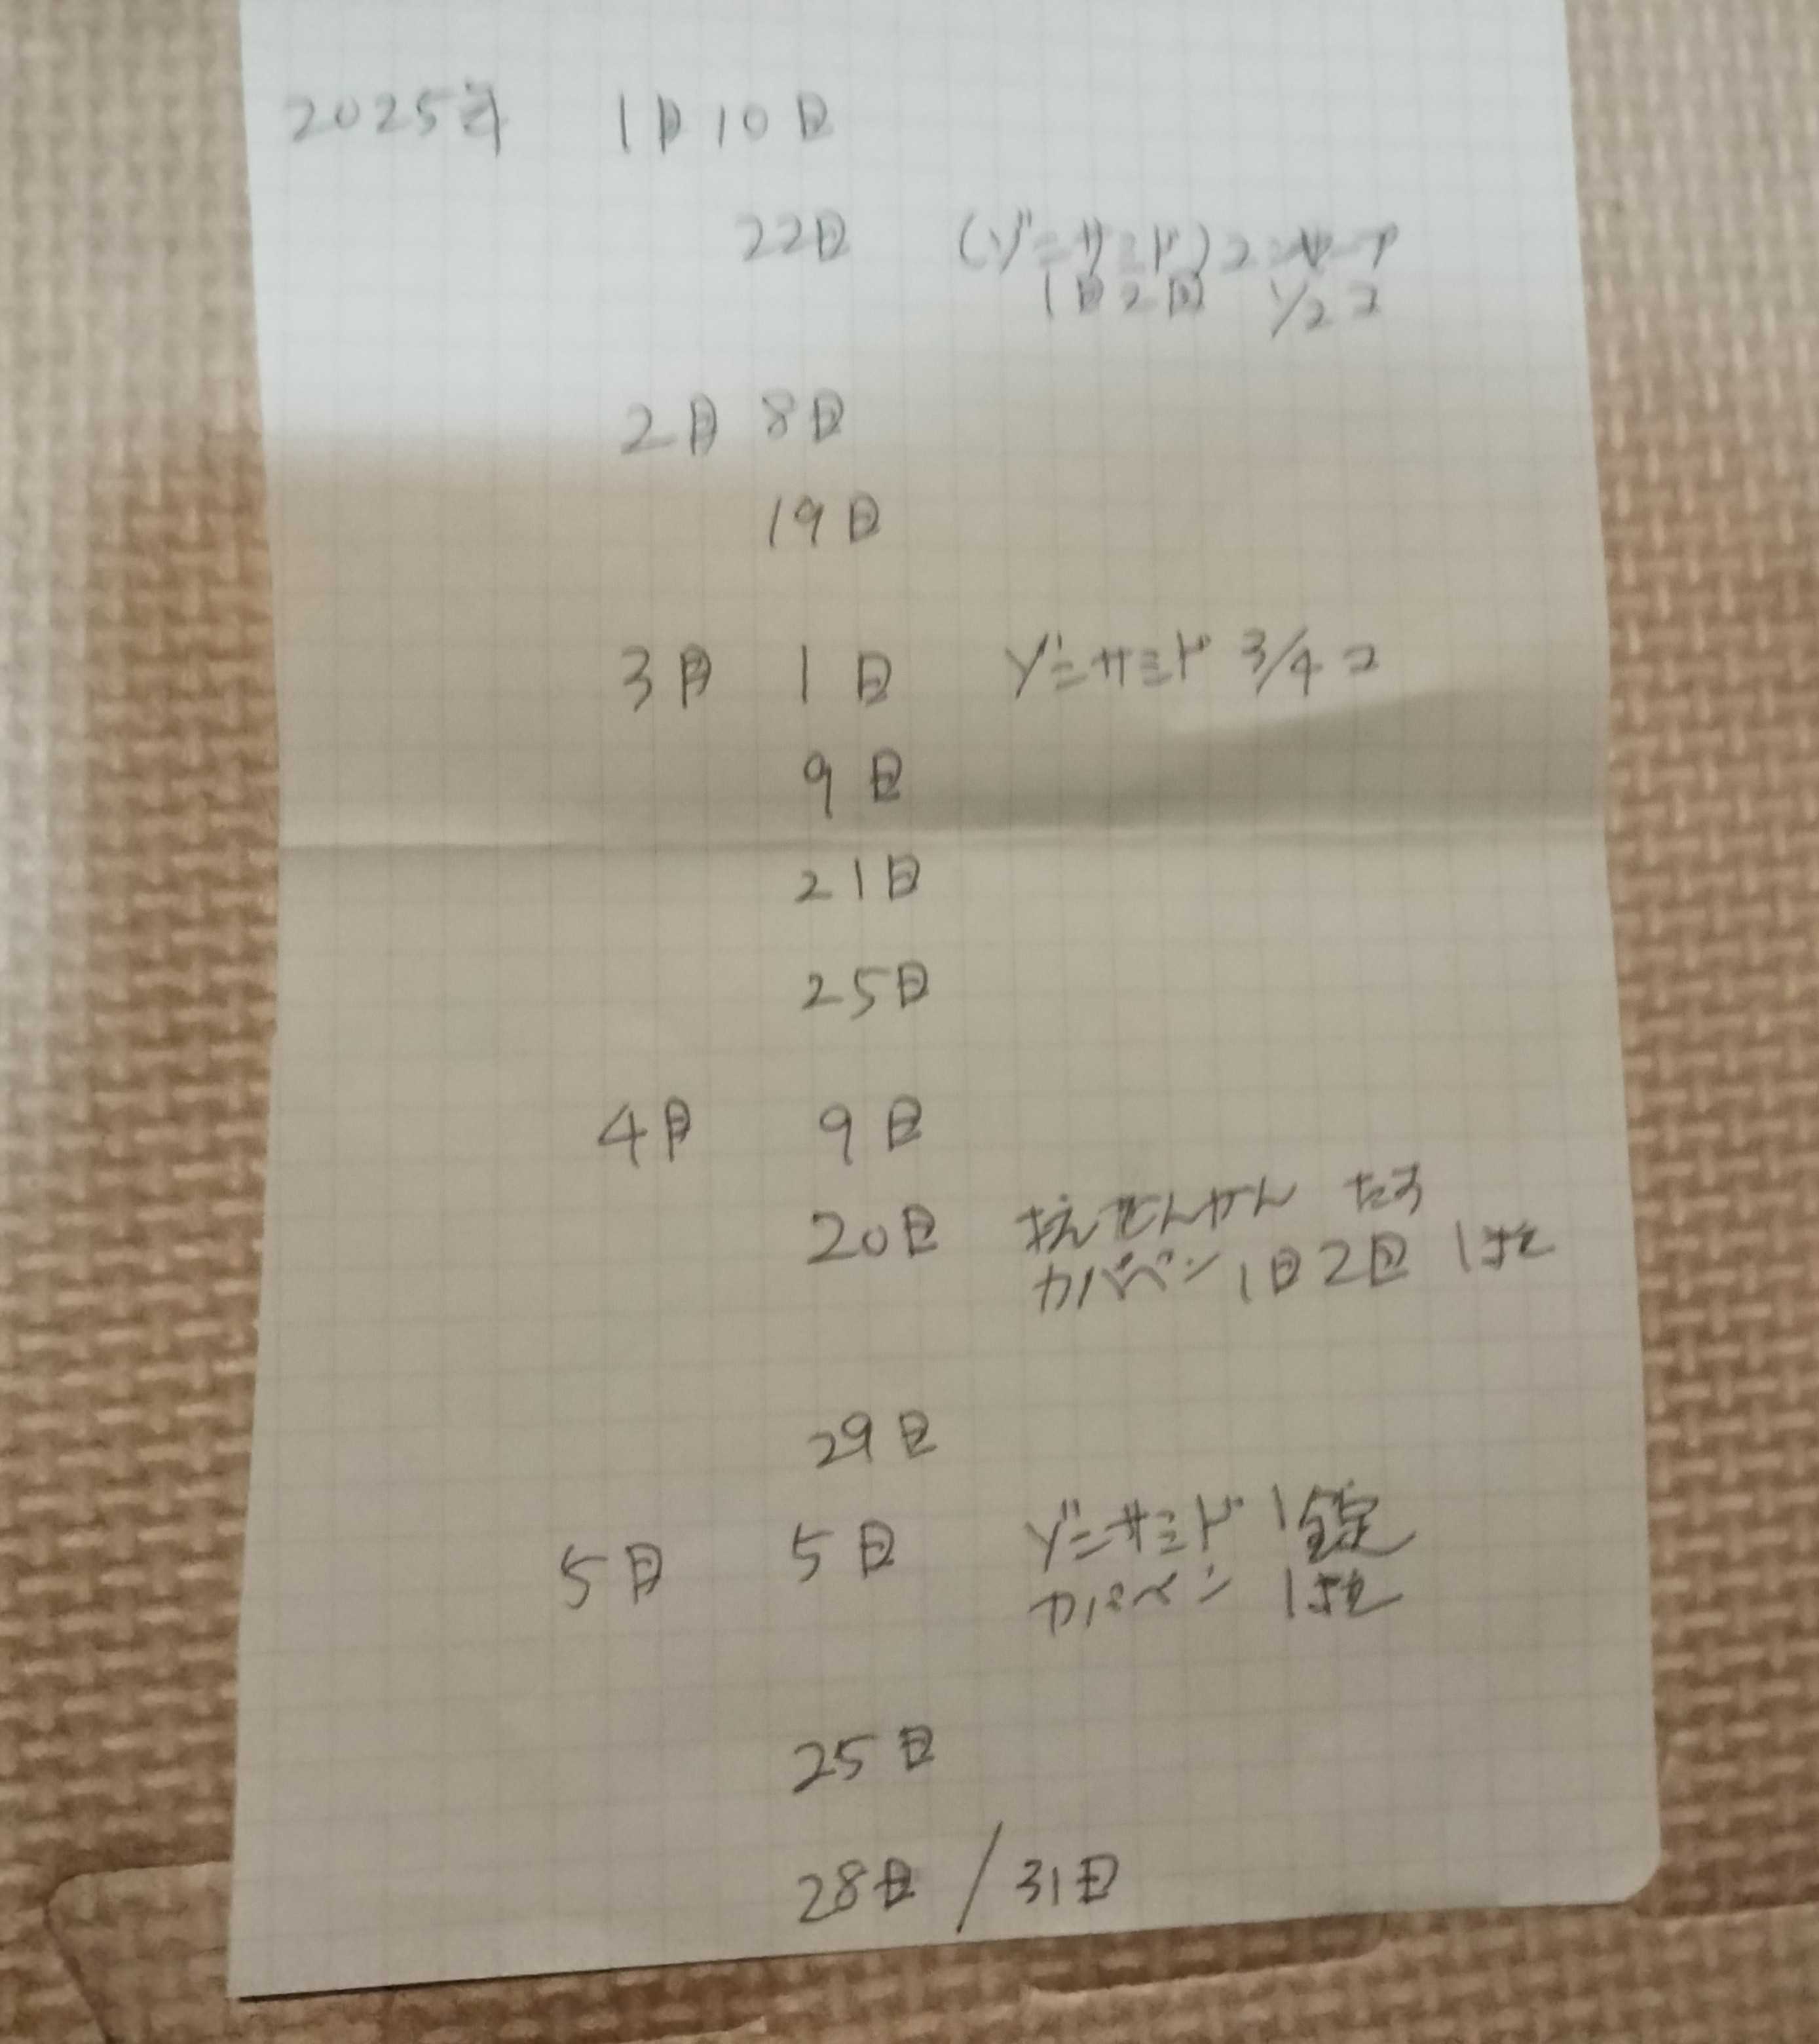 2025年 1月10日
22日 (ゾニサミド)コンセーブ
1日2回 1/2コ
2月 8日
19日
3月 1日 ゾニサミド 3/4コ
9日
21日
25日
4月 9日
20日 抗せんかん たす
カパペン 1日2回 1錠
29日
5月 5日 ゾニサミド 1錠
カパペン 1錠
25日
28日 / 31日